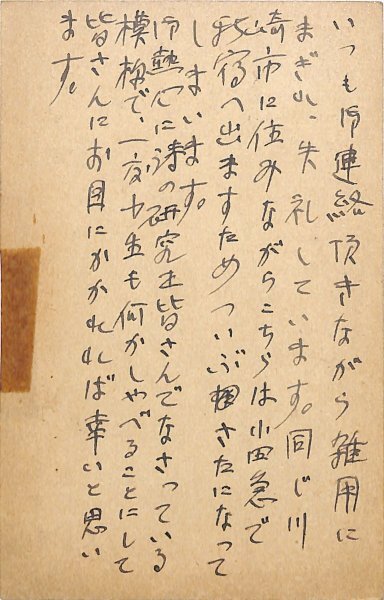 いつも御連絡頂きながら雑用に
まぎれ、失礼しています。同じ川
崎市に住みながらこちらは小田急で
新宿へ出ますためついぶ沙さたになって
しまいます。
御熱心に詩の研究を皆さんでなさっている
模様で、一度小生も何かしゃべることにして
皆さんにお目にかかれれば幸いと思い
ます。